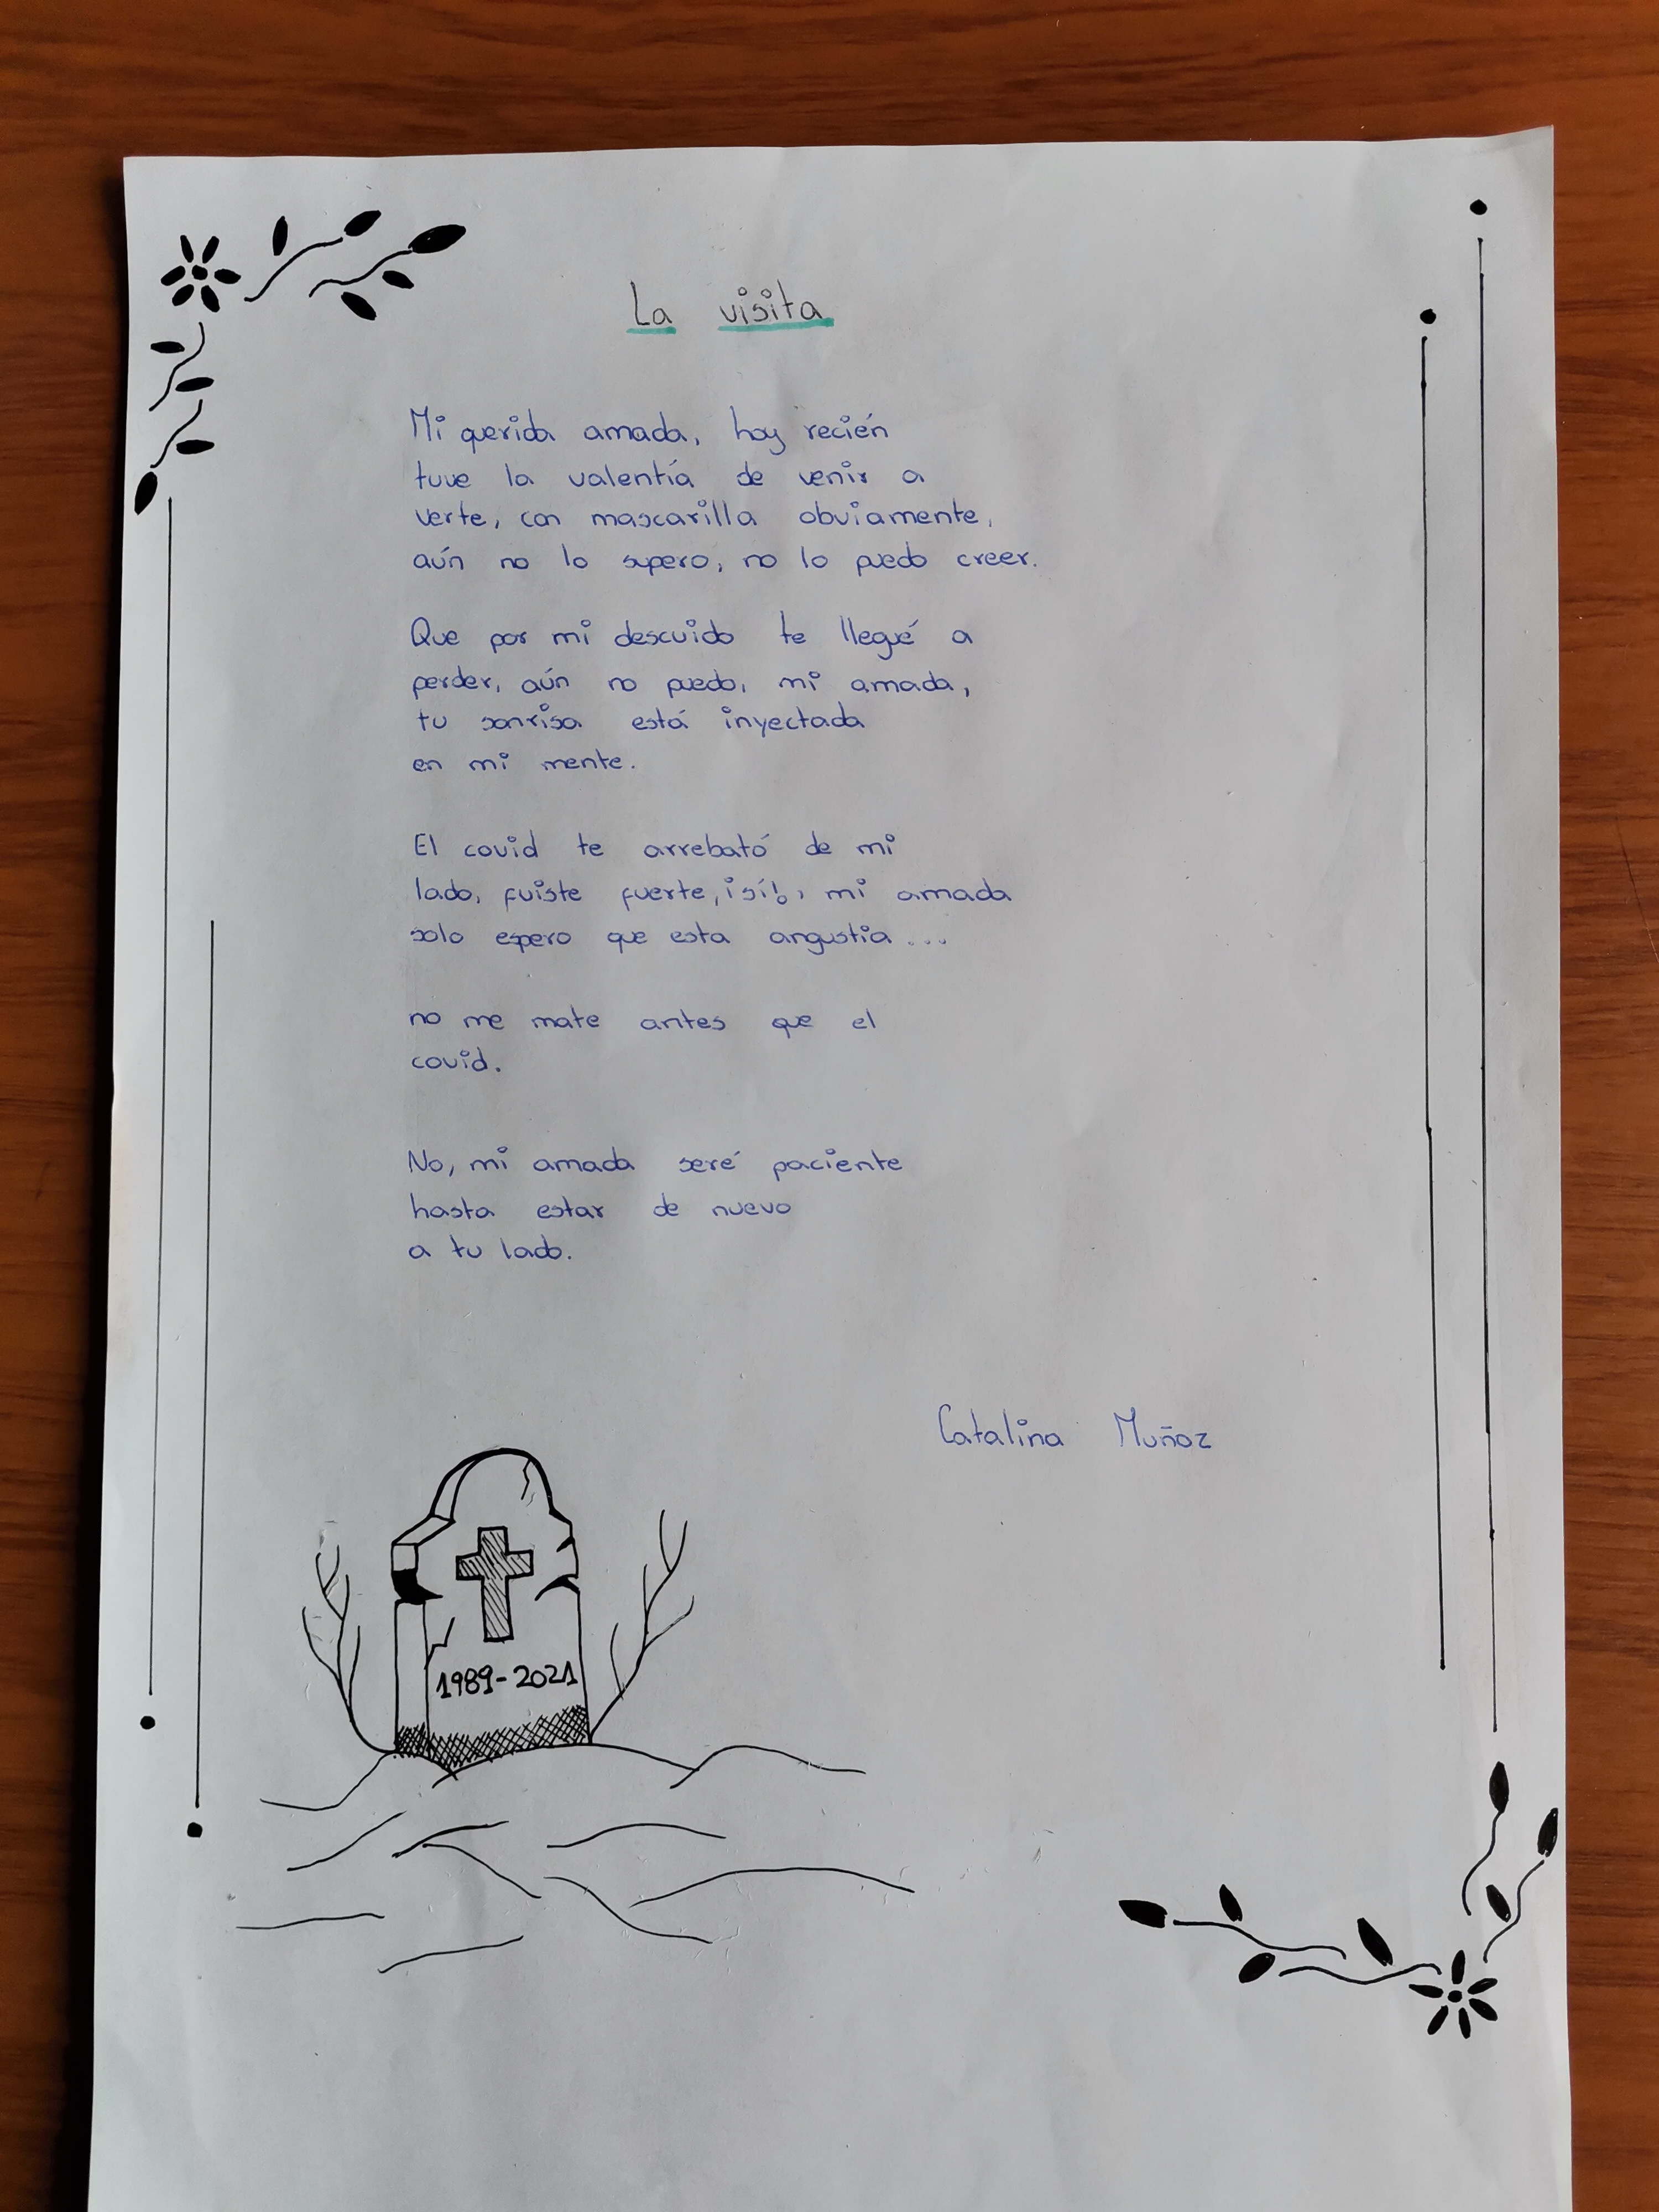 La visita
Mi querida amada, hoy recién
tuve la valentía de venir a
verte, con mascarilla obviamente,
aún no lo supero, no lo puedo creer.
Que por mi descuido te llegué a
perder, aún no puedo, mi amada,
tu sonrisa está inyectada
en mi mente.
El covid te arrebató de mi
lado, fuiste fuerte, ¡sí!, mi amada
solo espero que esta angustia...
no me mate antes que el
covid.
No, mi amada seré paciente
hasta estar de nuevo
a tu lado.
Catalina Muñoz
1989-2021